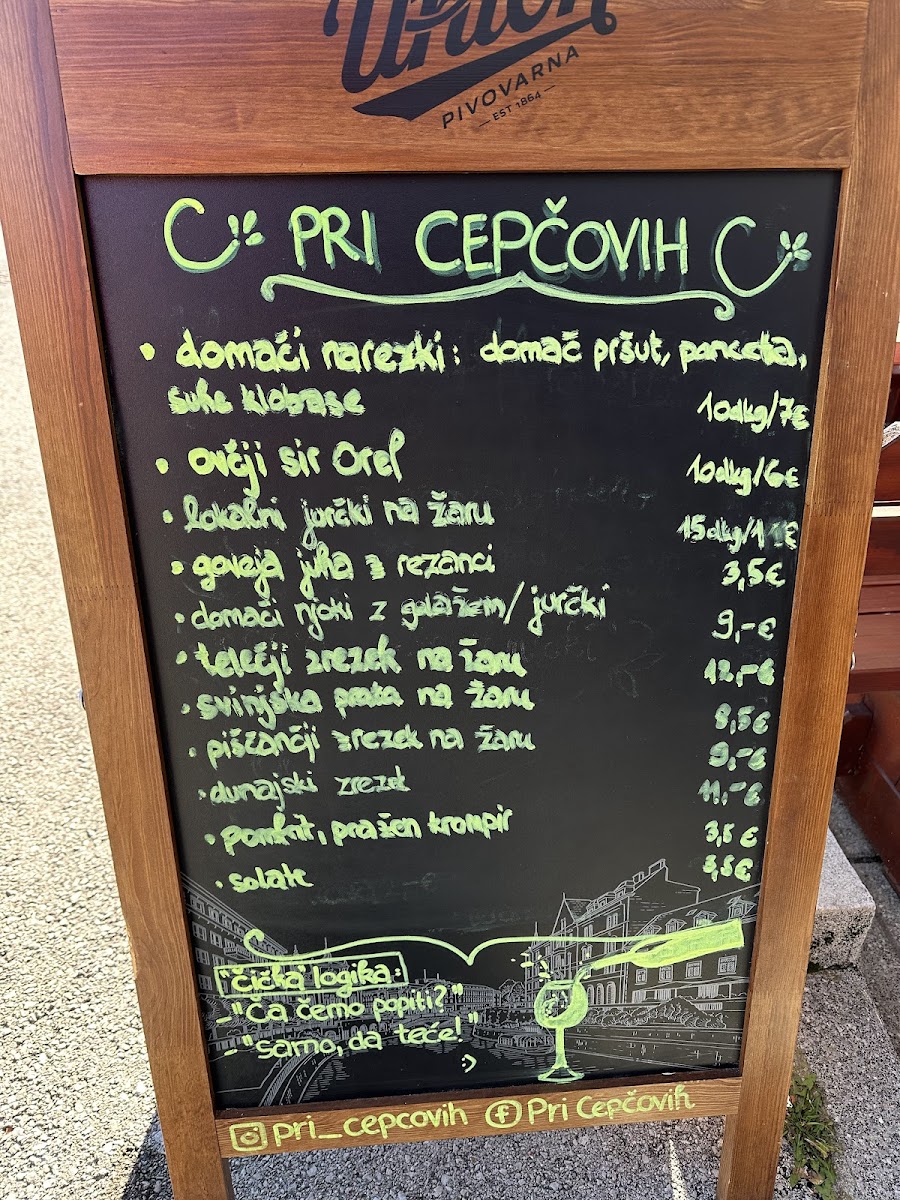 Union
PIVOVARNA
EST 1864
PRI CEPČOVIH
• domači narezki: domač pršut, panceta,
suhe klobase 10dkg/7€
• ovčji sir Orel 10dkg/6€
• lokalni jurčki na žaru 15dkg/1 €
• goveja juha z rezanci 3,5€
• domači njoki z golažem/jurčki 9,-€
• telečji zrezek na žaru 12,-€
• svinjska prata na žaru 8,5€
• piščančji zrezek na žaru 9,-€
• dunajski zrezek 11,-€
• pomfrit, pražen krompir 3,5€
• solate 3,5€
"čička" logika:
-"Ča čemo popiti?"
-"samo, da teče!"
:)
pri_cepcovih f Pri Cepčovih